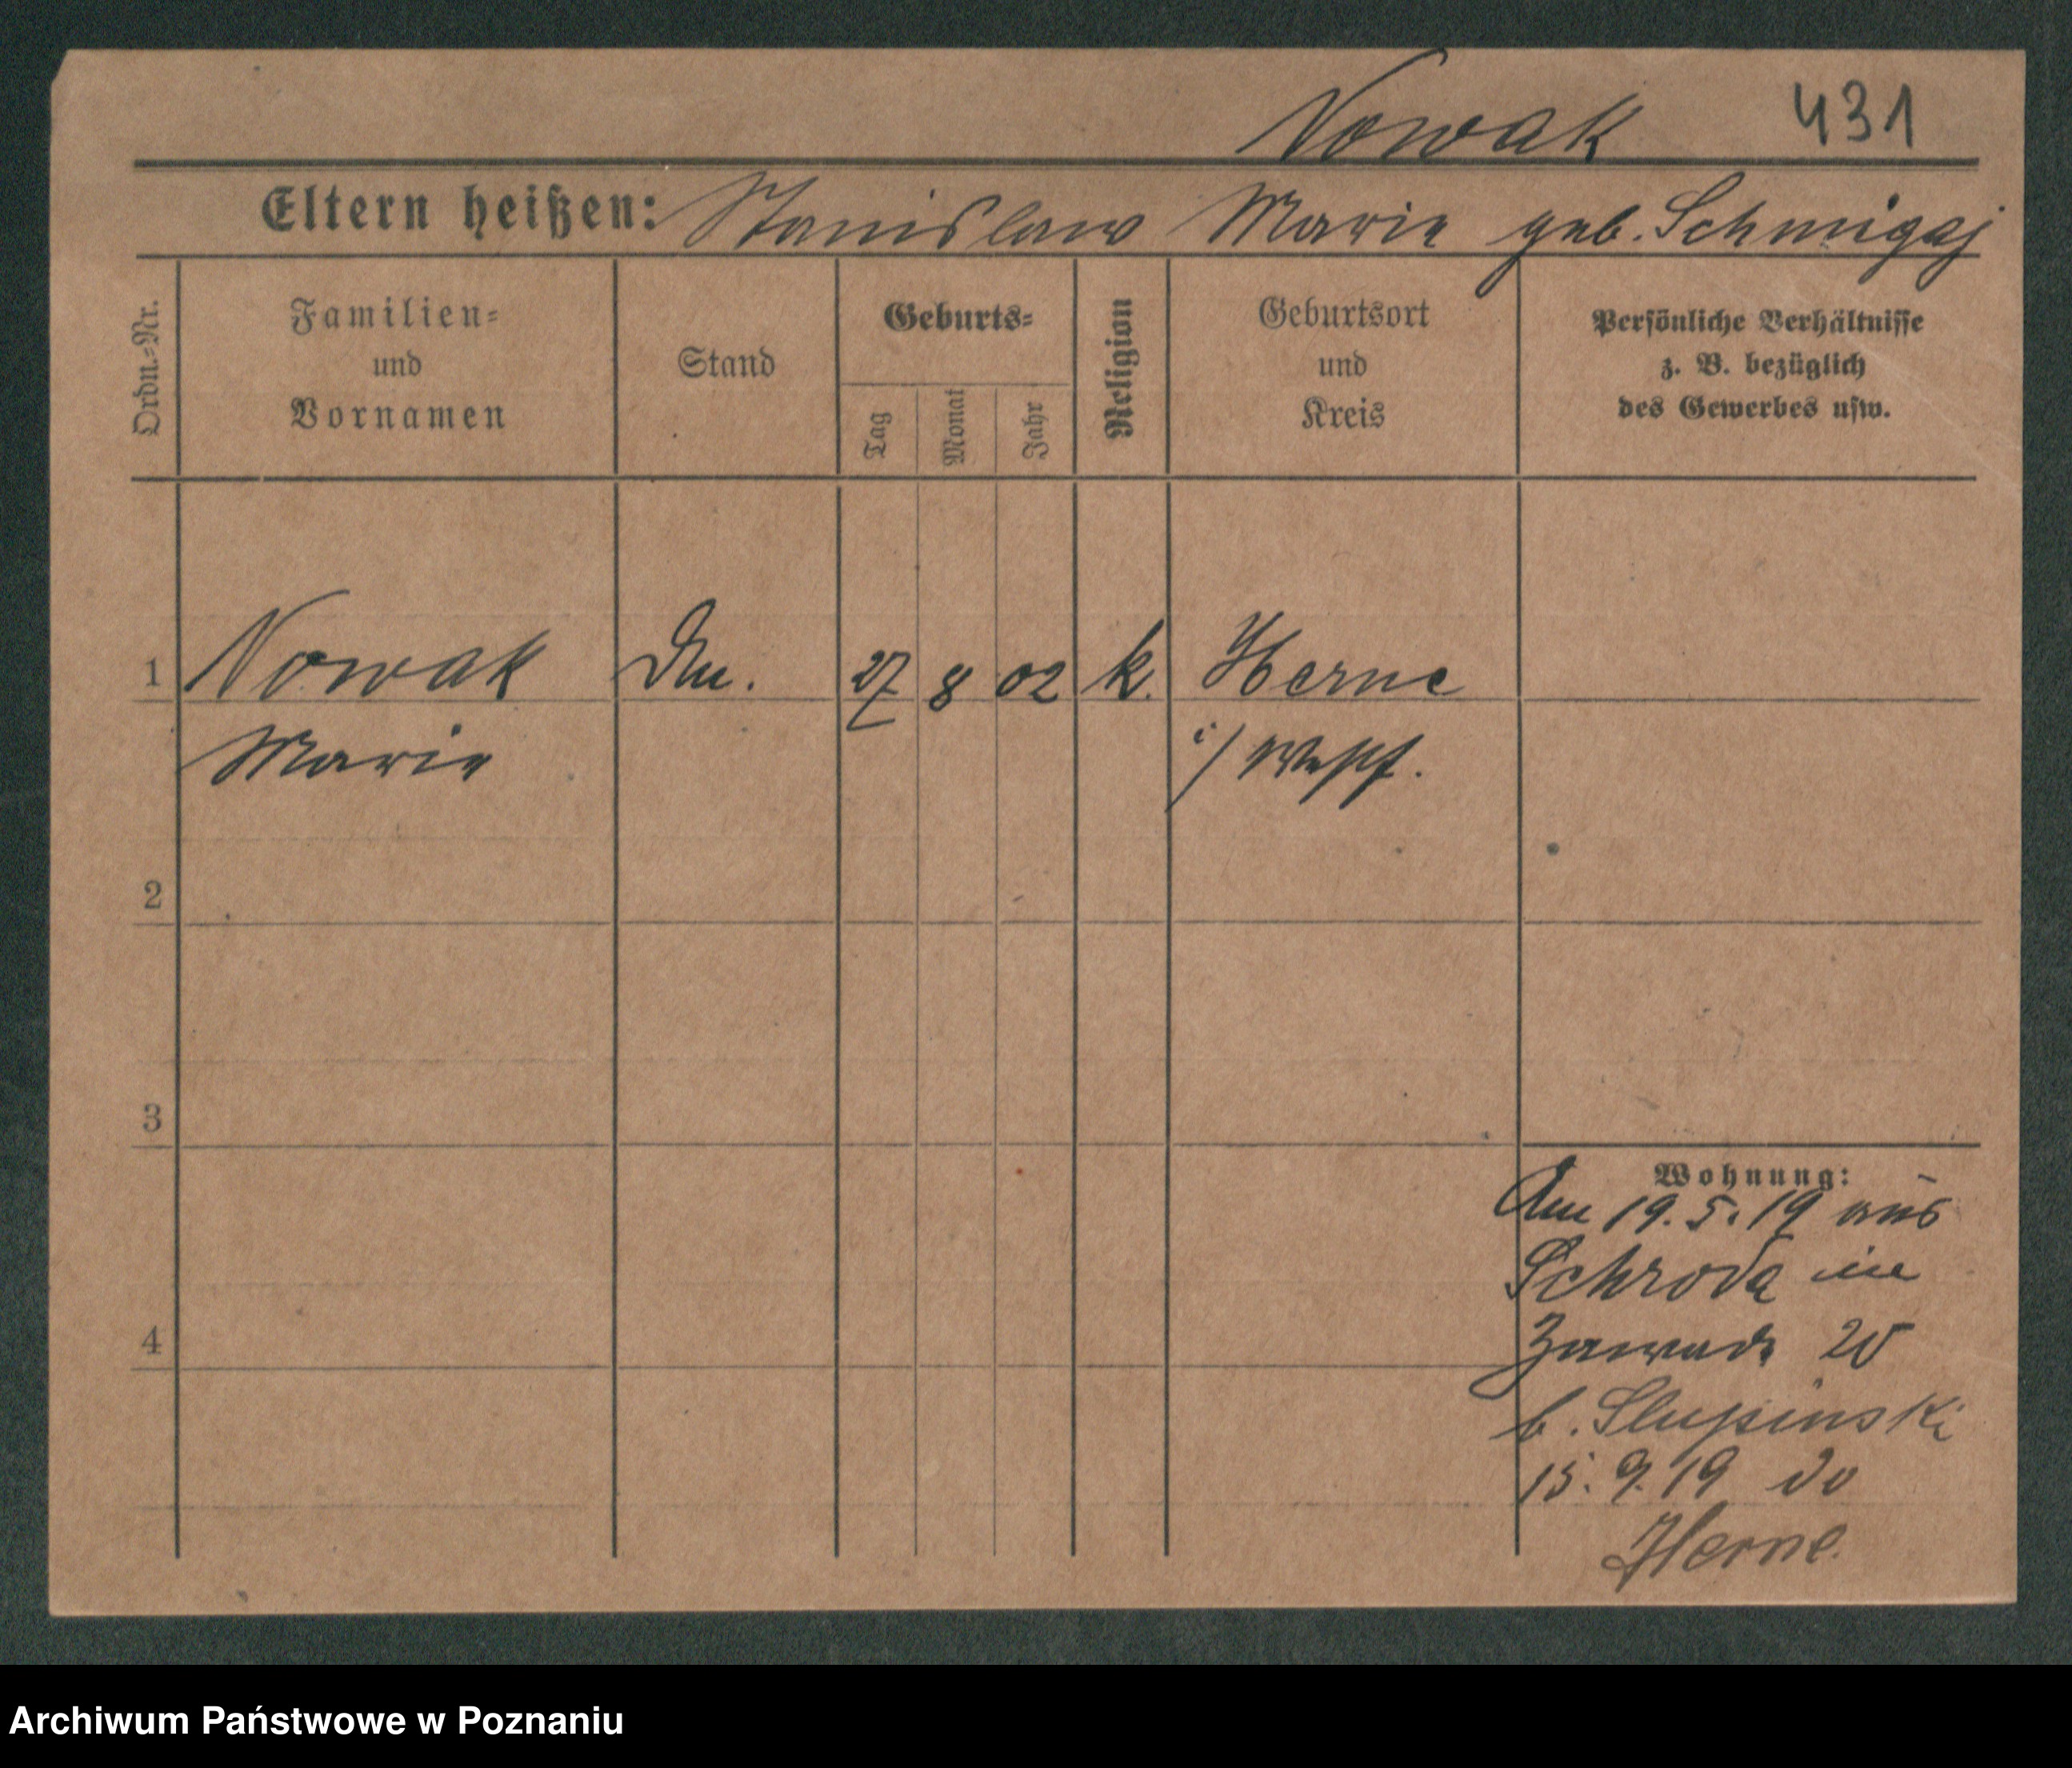 Nowak 431
Eltern heißen: Stanislaw Marie geb. Schmigaj
Ordn.=Nr.
Familien=
und
Vornamen
Stand
Geburts=
Tag
Monat
Jahr
Religion
Geburtsort
und
Kreis
Persönliche Verhältnisse
z. B. bezüglich
des Gewerbes usw.
1 Nowak 27 8 02 k. Herne
Marie i/ Westf.
2
3
4
Wohnung:
Am 19.5.19 aus
Schroda in
Zawade 20
b. Slupinski
15.9.19 do
Herne.
Archiwum Państwowe w Poznaniu